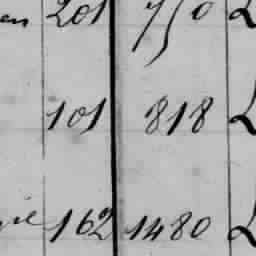 en 201 750 L
101 818 L
162 1480 L